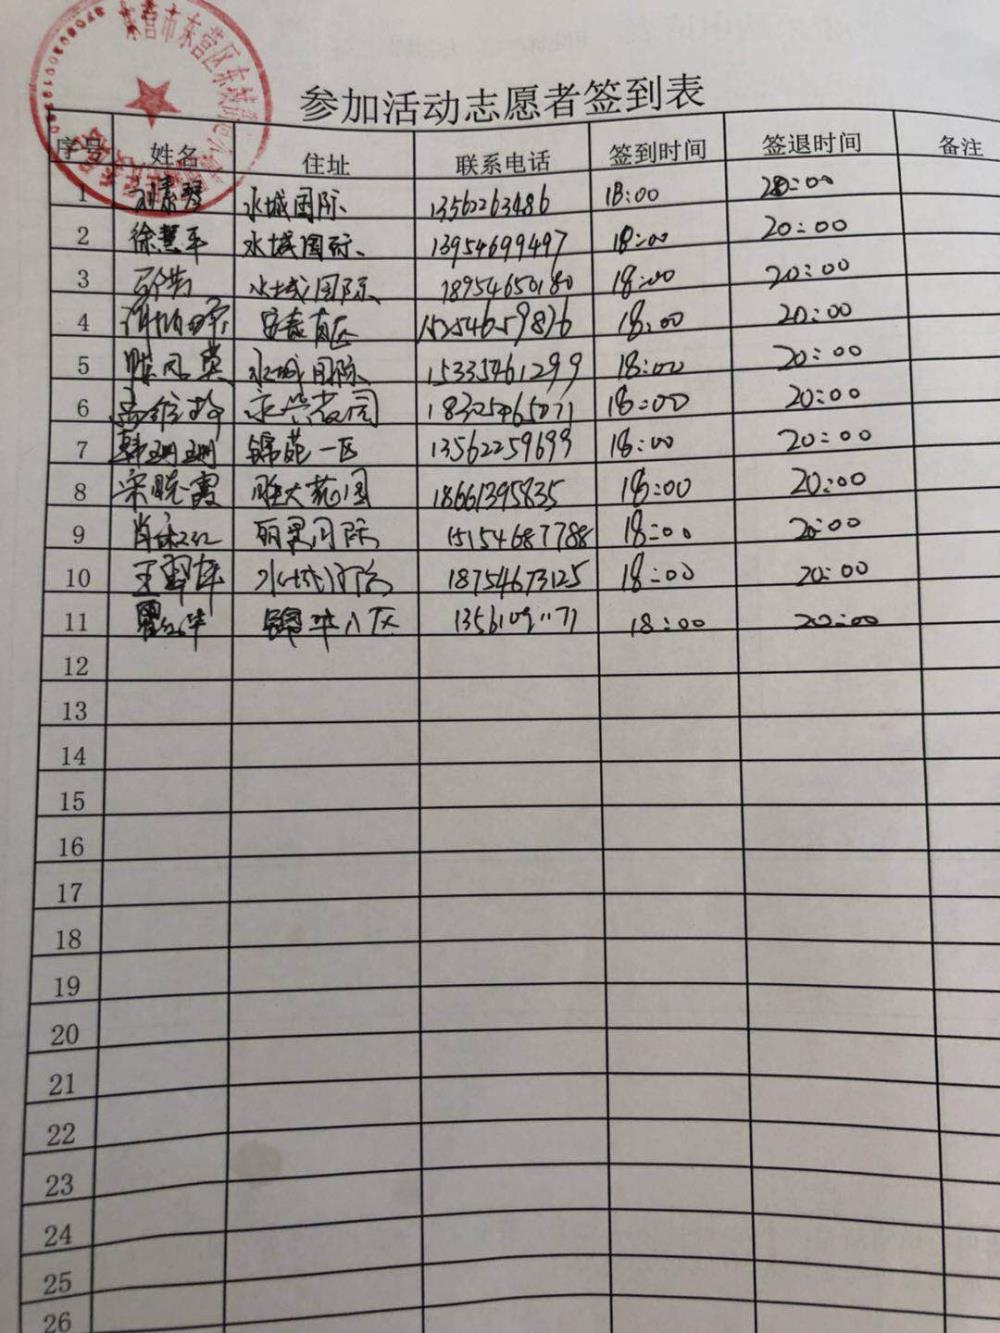 东营市东营区东城街
参加活动志愿者签到表
序号 姓名 住址 联系电话 签到时间 签退时间 备注
1 刘素琴 水城国际 13562263486 18:00 20:00
2 徐慧平 水城国际 13954699497 18:00 20:00
3 水城国际 18954650180 18:00 20:00
4 15254659876 18:00 20:00
5 陈凤英 水城国际 15335461299 18:00 20:00
6 孟维玲 花园 18325465071 18:00 20:00
7 韩珊珊 锦苑一区 13562259699 18:00 20:00
8 宋晓霞 胜大花园 18661395835 18:00 20:00
9 肖 丽景国际 15154687788 18:00 20:00
10 王翠萍 水城 18754673125 18:00 20:00
11 锦华八区 18:00 20:00
12
13
14
15
16
17
18
19
20
21
22
23
24
25
26